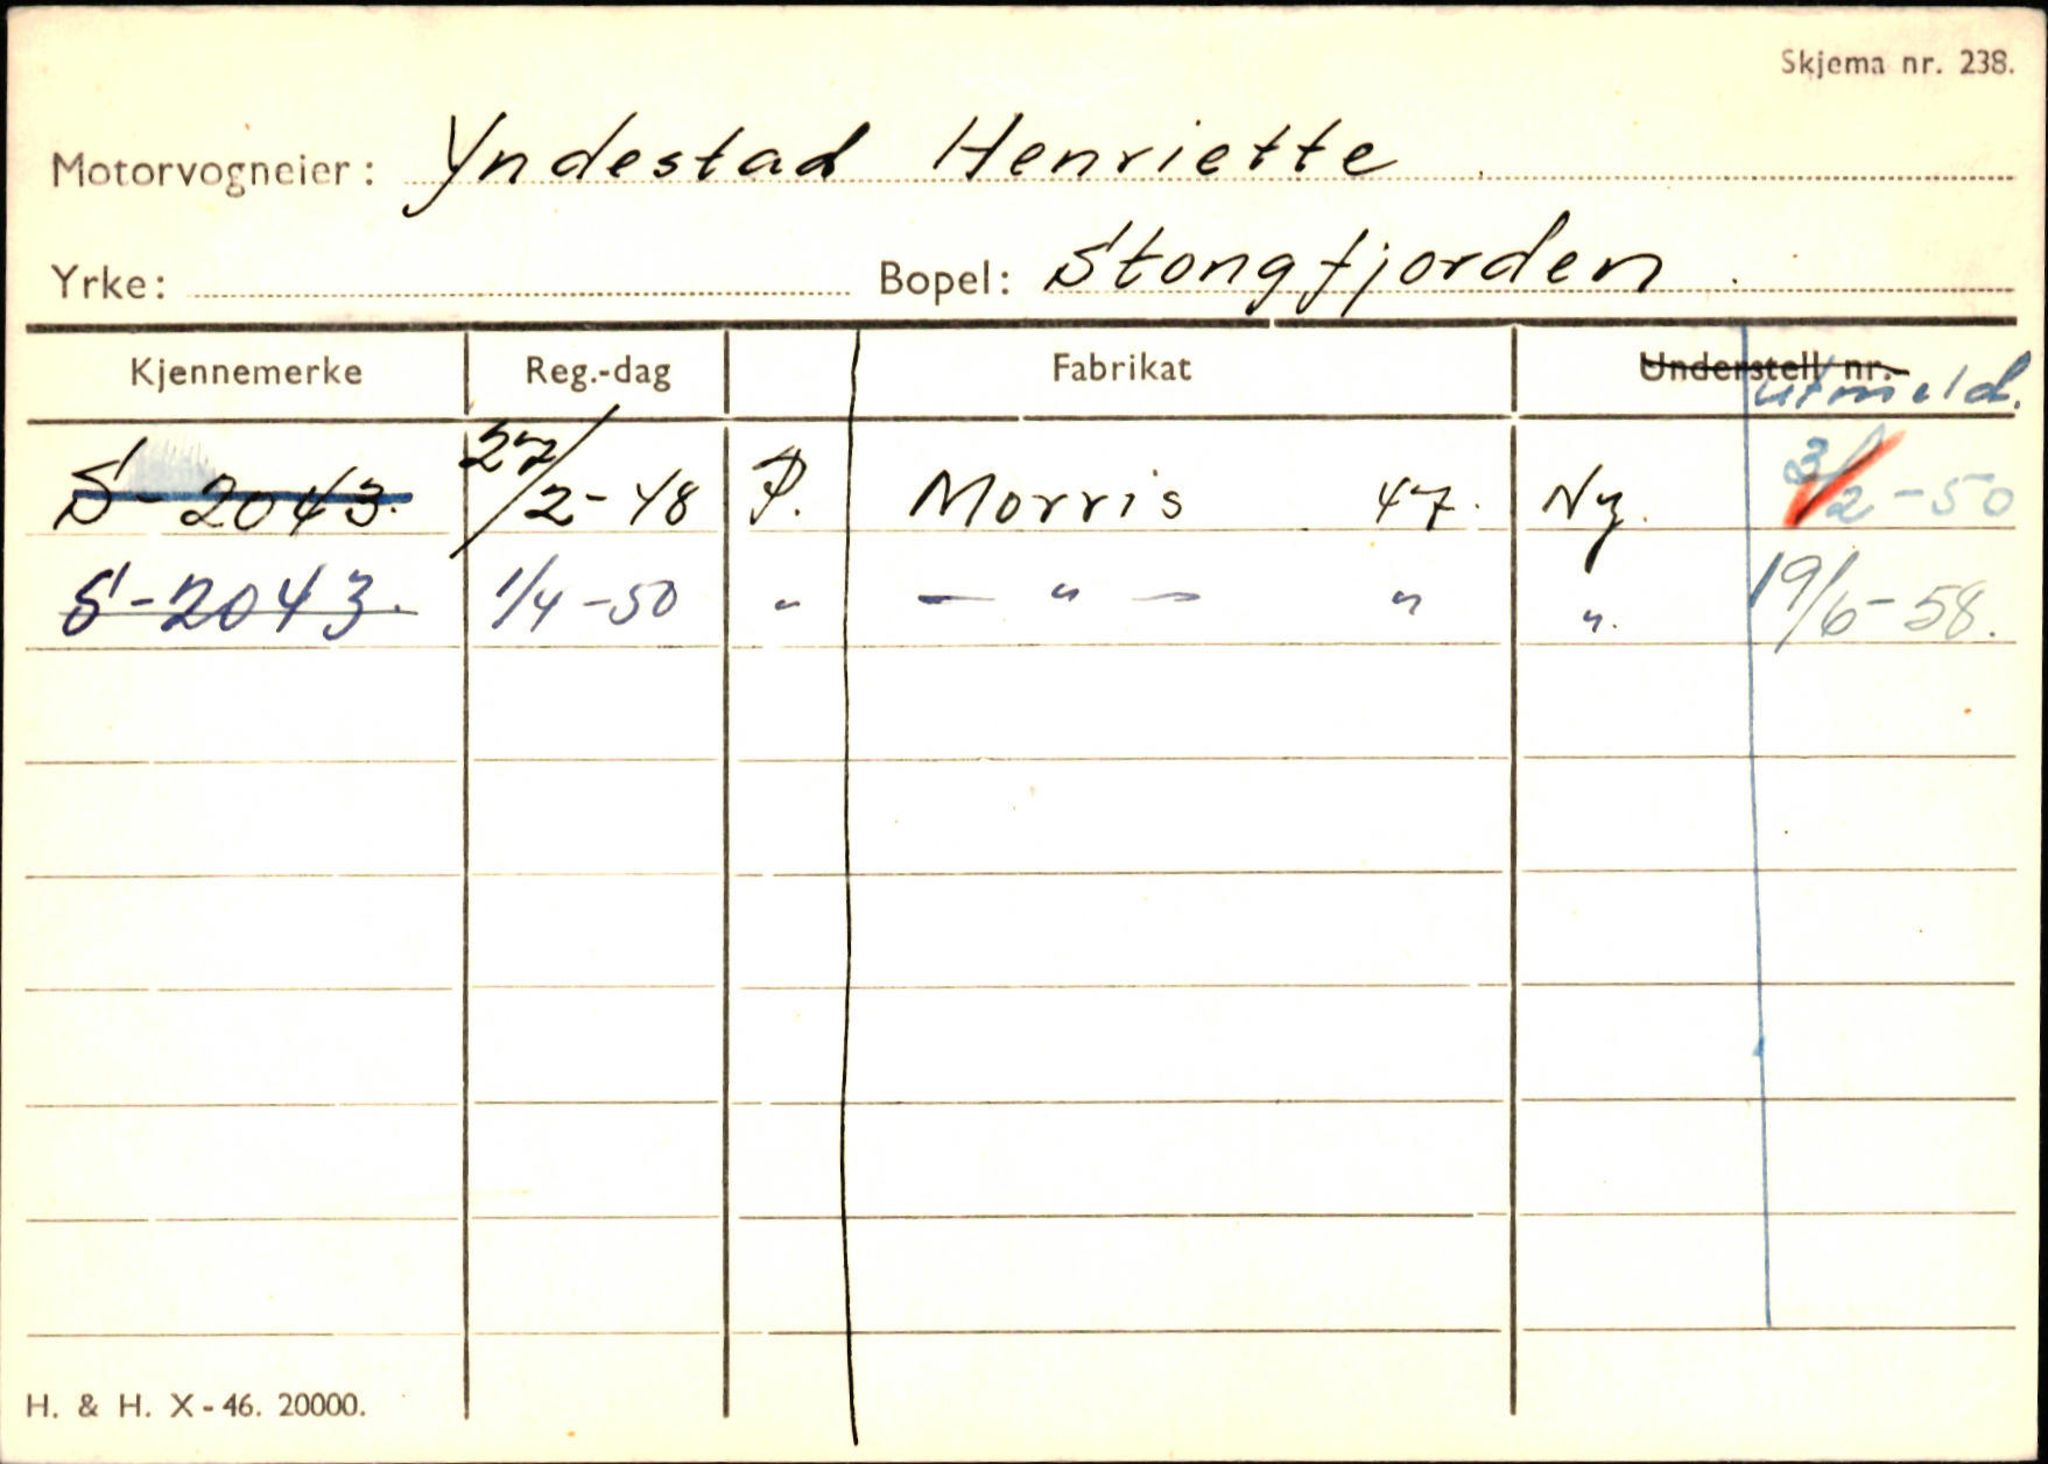 Skjema nr. 238.
Motorvogneier: Yndestad Henriette
Yrke: Bopel: Stongfjorden
Kjennemerke Reg.-dag Fabrikat Understell nr. utmeld.
S-2043. 27/2-48 P. Morris 47. Ny. 3/2-50
S-2043. 1/4-50 " — " — " ". 19/6-58.
H. & H. X-46. 20000.